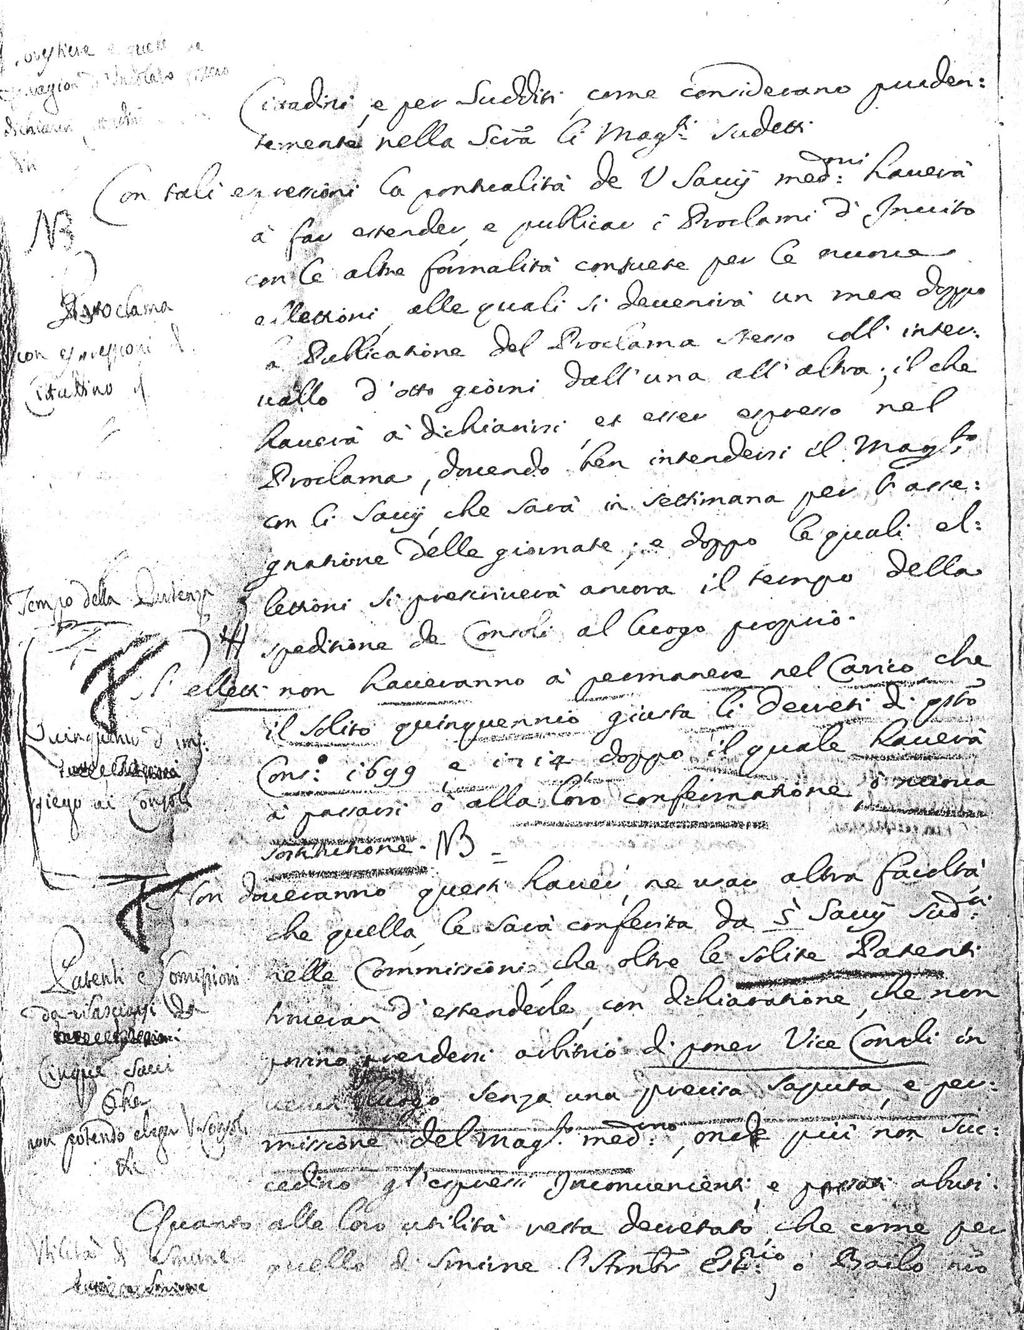 Cittadini, e per Sudditi, come considerano pruden:
temente nella Scra li Magti sudetti
Con tali espressioni la pontualità de V Savij medmi haverà
à far estender, e publicar i Proclami d'Invito
con le altre formalità consuete per le nuove
ellettioni, alle quali si devenirà un mese doppo
la Publicatione del Proclama stesso coll'inter:
vallo d'otto giorni dall'una all'altra; il che
haverà à dichiarirsi et esser espresso nel
Proclama, dovendo ben intendersi il Magto
con li Savij, che sarà in settimana per l'asse:
gnatione delle giornate; e doppo le quali el:
lettioni si prescriverà ancora il tempo della
speditione de Consoli al luogo proprio.
Gl'elletti non haveranno à permanere nel Carico che
il solito quinquennio giusta li Decreti di psto
Conso 1699 e 1714 doppo il quale haverà
à passarsi ò alla loro confermatione, ò nuova
sostitutione. NB
Non doveranno questi haver, ne usar altra facoltà
che quella, le sarà conferita da 5 Savij Sudti
nelle Commissioni, che oltre le solite Patenti
doveran d'estenderle, con dichiaratione, che non
possino prendersi arbitrio di poner Vice Consoli in
verun luogo senza una precisa saputa, e per:
missione del Magto medmo, onde più non suc:
cedino gl'espressi Inconvenienti, e passati abusi.
Quanto alle loro utilità resta decretato, che come per
quello di Smirne l'Ambr Estrio ò Bailo nro
NB
Proclama
con espressioni di
Cittadino
Tempo della Pudenza
Quinquennio d'im:
piego ai Consoli
Patenti e Comissioni
da rilasciarsi da
Cinque Savi
Che
non potendo elegger V. Consoli
Utilità di Smirne